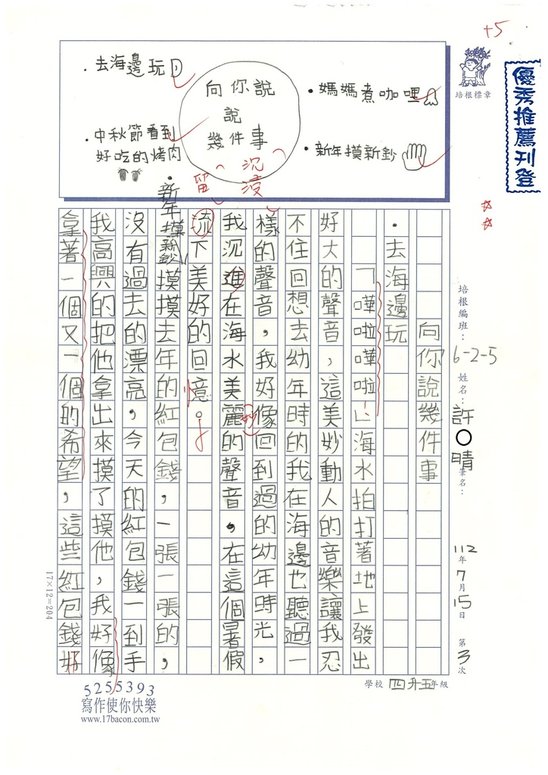 +5
優秀推薦刊登
培根標章
・去海邊玩
・中秋節看到
好吃的烤肉
向你說
說
幾件事
・媽媽煮咖哩
・新年摸新鈔
培根編班：6-2-5
姓名：許○晴
筆名：
112年7月15日
第3次
向你說幾件事
・去海邊玩
「嘩啦嘩啦」海水拍打著地上發出
好大的聲音，這美妙動人的音樂讓我忍
不住回想去幼年時的我在海邊也聽過一
樣的聲音，我好像回到過的幼年時光，
我沉進在海水美麗的聲音。在這個暑假
沉浸
流下美好的回憶。
留
・新年摸新鈔
摸摸去年的紅包錢，一張一張的，
沒有過去的漂亮，今天的紅包錢一到手
我高興的把他拿出來摸了摸他，我好像
拿著一個又一個的希望，這些紅包錢好
17×12=204
5255393
寫作使你快樂
www.17bacon.com.tw
學校 四升五年級